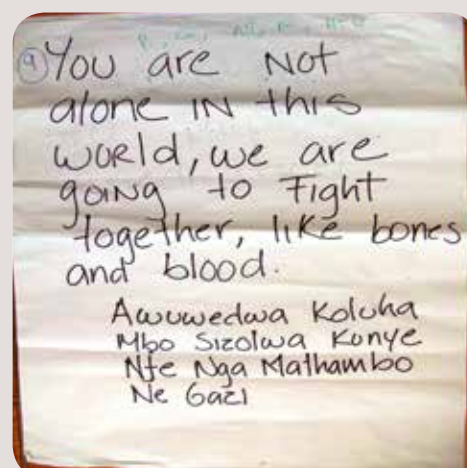 9 You are Not
alone IN this
world, we are
going to Fight
together, like bones
and blood.
Awuwedwa Koluha
Mbo Sizolwa Kunye
Nje Nga Mathambo
Ne Gazi